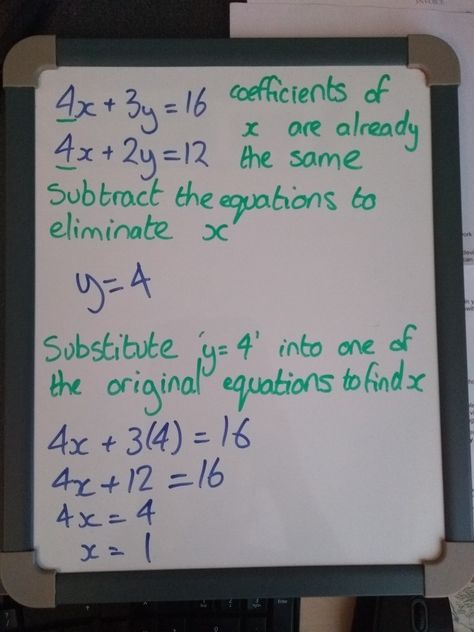 INVOICE
4x + 3y = 16 coefficients of
x are already
4x + 2y = 12 the same
Subtract the equations to
eliminate x
y = 4
Substitute 'y = 4' into one of
the original equations to find x
4x + 3(4) = 16
4x + 12 = 16
4x = 4
x = 1